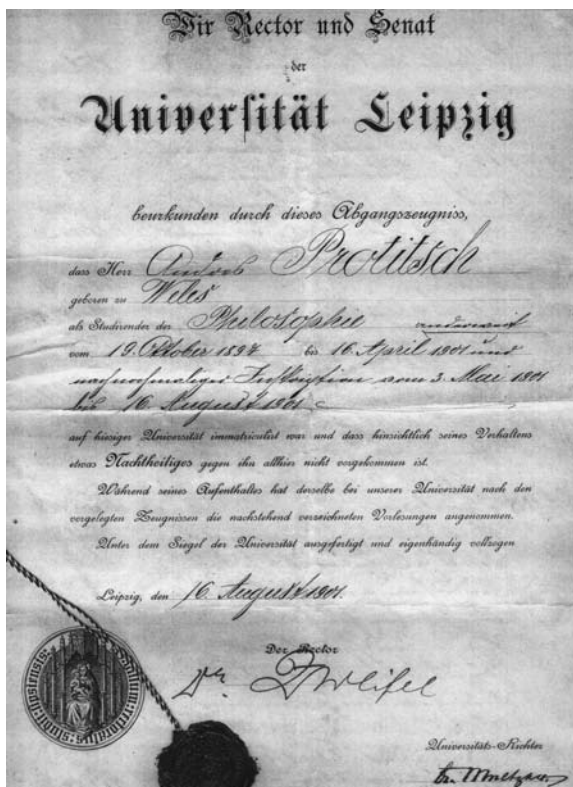 Wir Rector und Senat
der
Universität Leipzig
beurkunden durch dieses Abgangszeugniss,
dass Herr Andrei Protitsch
geboren zu Weles
als Studirender der Philosophie anderweit
vom 19. Oktober 1897 bis 16. April 1901 und
nach nochmaliger Inskription vom 3. Mai 1901
bis 16. August 1901
auf hiesiger Universität immatriculirt war und dass hinsichtlich seines Verhaltens
etwas Nachtheiliges gegen ihn allhier nicht vorgekommen ist.
Während seines Aufenthaltes hat derselbe bei unserer Universität nach den
vorgelegten Zeugnissen die nachstehend verzeichneten Vorlesungen angenommen.
Unter dem Siegel der Universität ausgefertigt und eigenhändig vollzogen
Leipzig, den 16. August 1901.
Der Rector
Dr. Zweifel
Universitäts-Richter